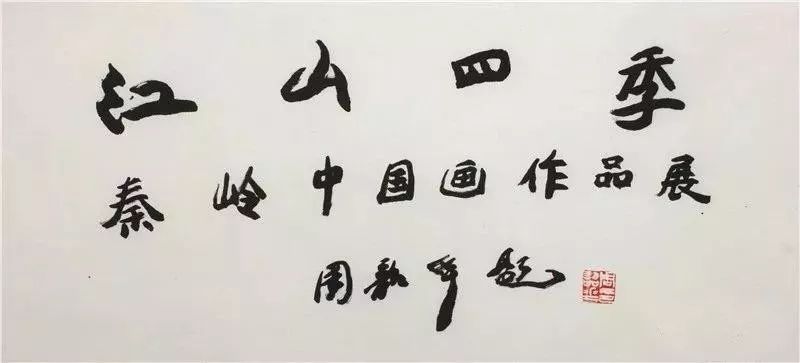 江山四季
秦岭中国画作品展
周韶华题